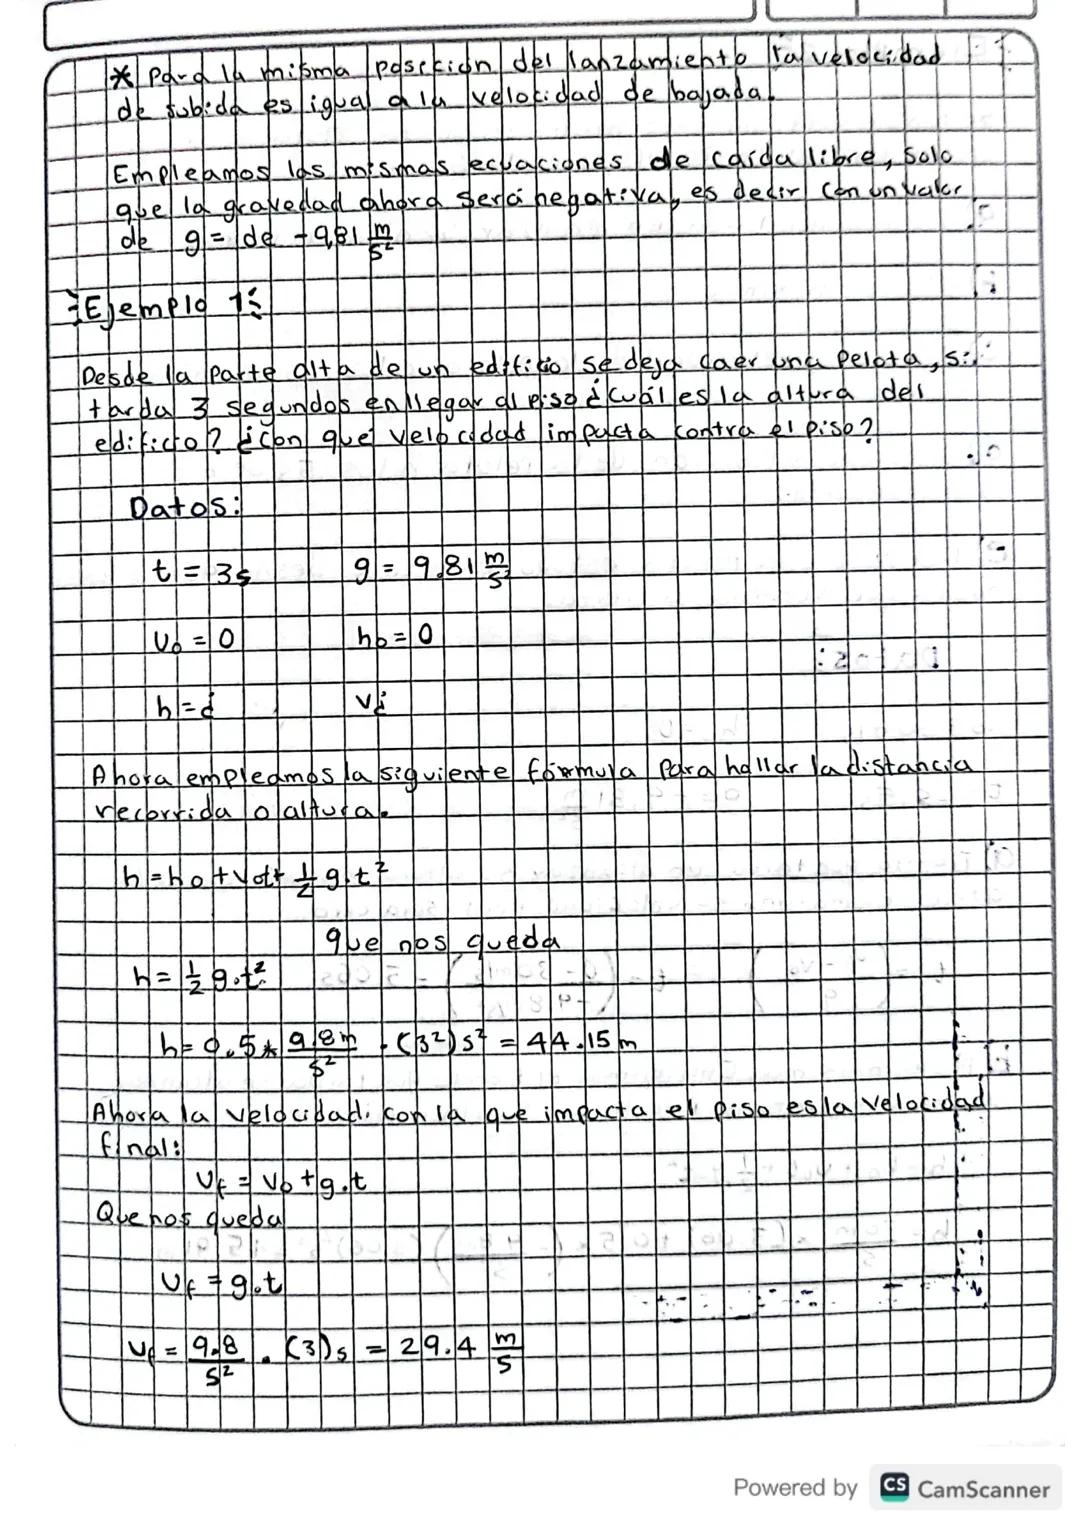 * Para la misma posición del lanzamiento la velocidad
de subida es igual a la velocidad de bajada.
Empleamos las mismas ecuaciones de caída libre, solo
que la gravedad ahora será negativa, es decir con un valor
de g = de -9,81 m/s²
Ejemplo 1:
Desde la parte alta de un edificio se deja caer una pelota, si
tarda 3 segundos en llegar al piso ¿cuál es la altura del
edificio? ¿con que velocidad impacta contra el piso?
Datos:
t = 3s g = 9.81 m/s²
v₀ = 0 h₀ = 0
h = ¿ v ¿
Ahora empleamos la siguiente fórmula para hallar la distancia
recorrida o altura.
h = h₀ + v₀t + 1/2 g.t²
que nos queda
h = 1/2 g.t²
h = 0.5 * 9.8m/s² . (3²)s² = 44.15 m
Ahora la velocidad con la que impacta el piso es la velocidad
final:
Vf = V₀ + g.t
Que nos queda
Vf = g.t
Vf = 9.8/s² . (3)s = 29.4 m/s
Powered by CS CamScanner